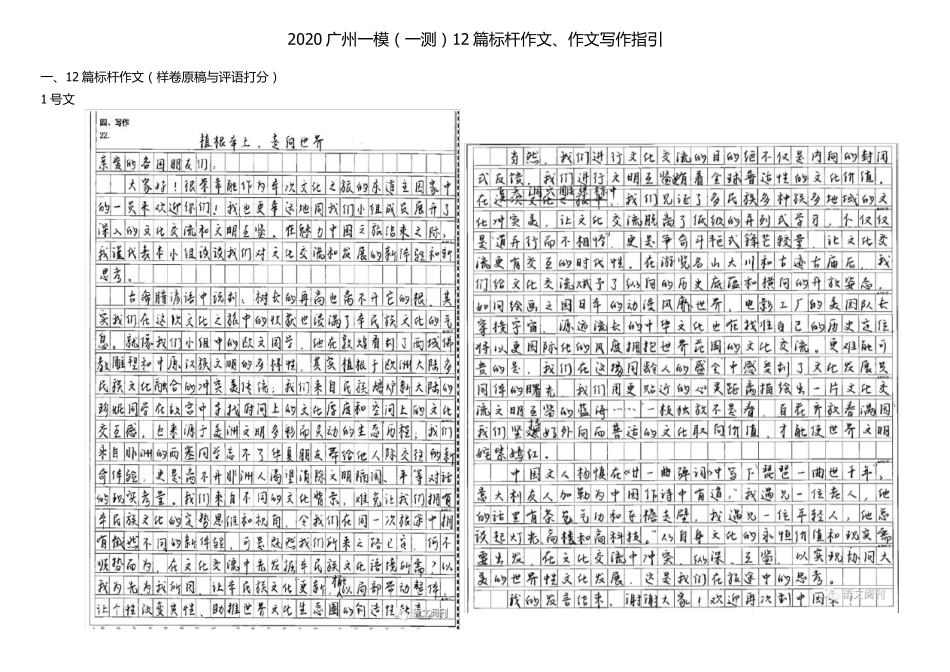 2020 广州一模（一测）12 篇标杆作文、作文写作指引
一、12 篇标杆作文（样卷原稿与评语打分）
1 号文
四、写作
22.
植根本土，走向世界
亲爱的各国朋友们：
大家好！很荣幸能作为本次文化之旅的东道主国家中
的一员来欢迎你们！我也更幸运地同我们小组成员展开了
深入的文化交流和文明互鉴。在魅力中国之旅结束之际，
我谨代表本小组谈谈我们对文化交流和发展的新体验和新
思考。
古希腊谚语中说到：树长的再高也离不开它的根。其
实我们在这次文化之旅中的收获也浸满了本民族文化的气
息。就像我们小组中的欧文同学，他在敦煌看到了西域佛
教雕塑和中原汉族文明的多样性，其实植根于欧洲大陆多
民族文化融合的冲突美传统；我们来自民族熔炉新大陆的
珍妮同学在故宫中寻找时间上的文化厚度和空间上的文化
交互感，也来源于美洲文明多彩而灵动的生态内核；我们
来自非洲的西恩同学忘不了华夏朋友带给他人际交往的新
奇体验，更是离不开非洲人渴望消除文明隔阂、平等对话
的现实考量。我们来自不同的文化背景，难免让我们拥有
本民族文化的定势思维和视角，令我们在同一次旅途中拥
有截然不同的新体验。可是既然我们所来之路已定，何不
顺势而为，在文化交流中先发掘本民族文化语境所需？以
我为先为我所用，让本民族文化更新，以局部带动整体，
让个性改变共性，助推世界文化生态圈的构造性
当然，我们进行文化交流的目的绝不仅是内向的封闭
式反馈，我们进行文明互鉴有着全球普适性的文化价值。
在这次文化之旅中，我们见证了多民族多种族多地域的文
化冲突美，让文化交流脱离了低级的并列式学习，不仅仅
是道并行而不相悖，更是争奇斗艳式锋芒较量，让文化交
流更有交互的时代性。在游览名山大川和古迹古庙后，我
们给文化交流赋予了纵向的历史底蕴和横向的开放姿态，
如同绘画之国日本的动漫风靡世界，电影工厂的美国队长
穿梭宇宙，源远流长的中华文化也在找准自己的历史定位
将以更国际化的风度拥抱世界范围的文化交流。更难能可
贵的是，我们在这场同龄人的盛会中感受到了文化发展共
同体的曙光。我们用更贴近的心灵距离描绘出一片文化交
流文明互鉴的蓝海……一枝独放不是春，百花齐放春满园
我们坚持好外向而普适的文化取向价值，才能使世界文明
姹紫嫣红。
中国文人杨慎在《廿一曲弹词》中写下"琵琶一曲世千年"，
意大利友人加勒为中国作诗中有道："我遇见一位老人，他
的话里有茶艺气功和飞檐走壁，我遇见一位年轻人，他总
谈起灯光高楼和高科技。"从自身文化的永恒价值和现实需
要出发，在文化交流中冲突、纵深、互鉴，以实现协同大
美的世界性文化发展，这是我们在旅途中的思考。
我的发言结束，谢谢大家！欢迎再次到中国来
语文阅刊
语文阅刊